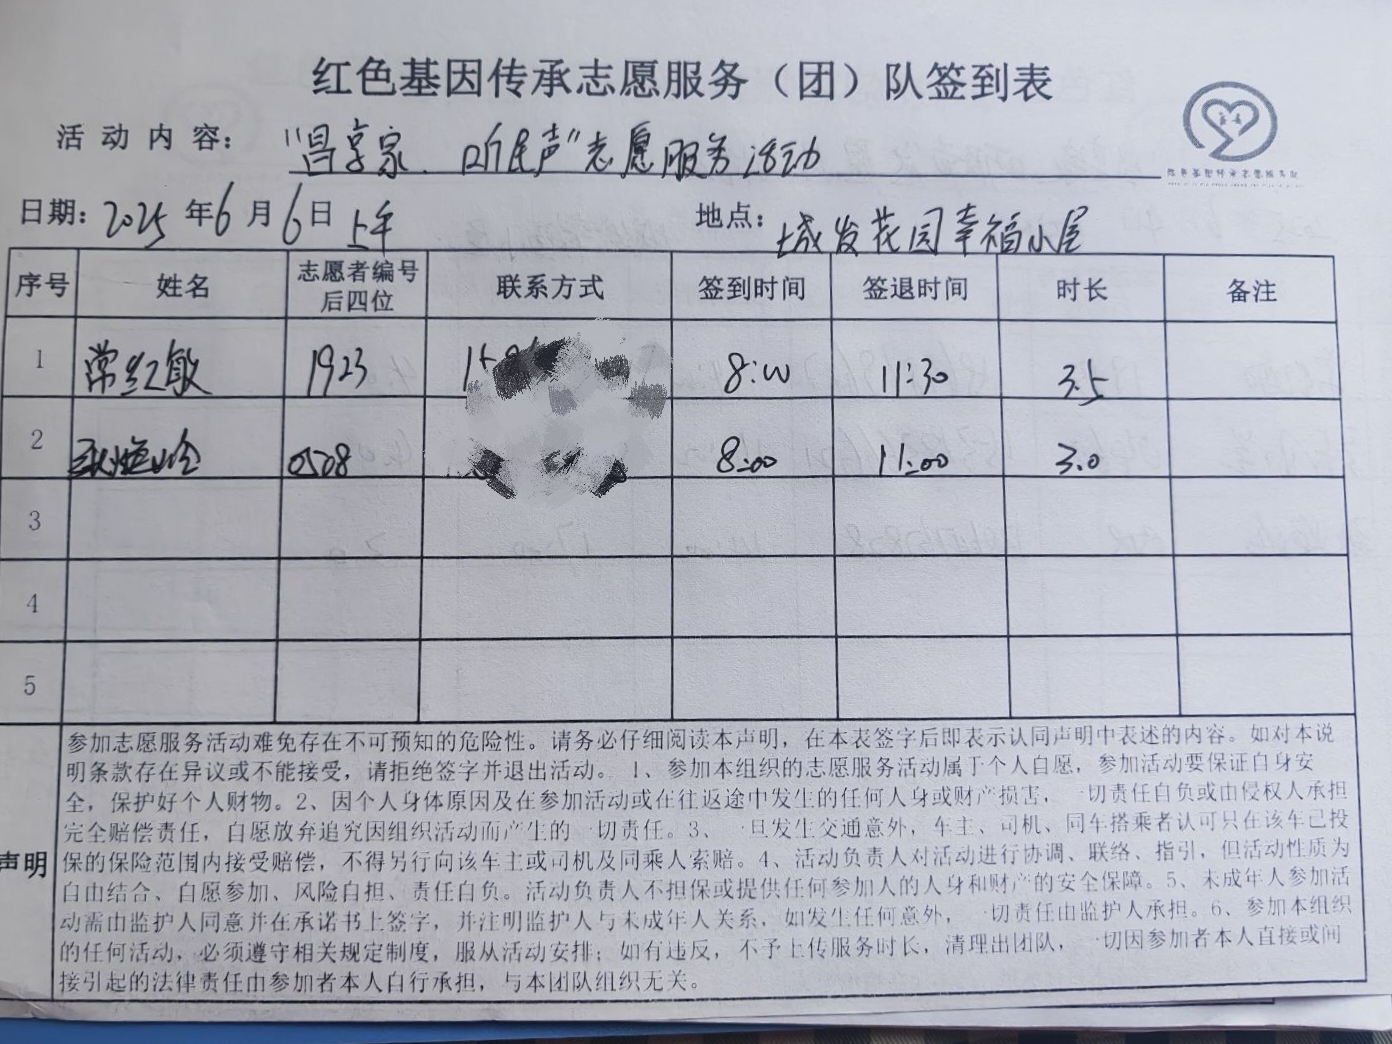 红色基因传承志愿服务（团）队签到表
活动内容：“昌享家.听民声”志愿服务活动
日期：2025年6月6日上午 地点：城发花园幸福小屋
序号 姓名 志愿者编号后四位 联系方式 签到时间 签退时间 时长 备注
1 常红敏 1923 8:00 11:30 3.5
2 0508 8:00 11:00 3.0
3
4
5
声明
参加志愿服务活动难免存在不可预知的危险性。请务必仔细阅读本声明，在本表签字后即表示认同声明中表述的内容。如对本说
明条款存在异议或不能接受，请拒绝签字并退出活动。1、参加本组织的志愿服务活动属于个人自愿，参加活动要保证自身安
全，保护好个人财物。2、因个人身体原因及在参加活动或在往返途中发生的任何人身或财产损害，一切责任自负或由侵权人承担
完全赔偿责任，自愿放弃追究因组织活动而产生的一切责任。3、一旦发生交通意外，车主、司机、同车搭乘者认可只在该车已投
保的保险范围内接受赔偿，不得另行向该车主或司机及同乘人索赔。4、活动负责人对活动进行协调、联络、指引，但活动性质为
自由结合、自愿参加、风险自担、责任自负。活动负责人不担保或提供任何参加人的人身和财产的安全保障。5、未成年人参加活
动需由监护人同意并在承诺书上签字，并注明监护人与未成年人关系，如发生任何意外，一切责任由监护人承担。6、参加本组织
的任何活动，必须遵守相关规定制度，服从活动安排；如有违反，不予上传服务时长，清理出团队，一切因参加者本人直接或间
接引起的法律责任由参加者本人自行承担，与本团队组织无关。